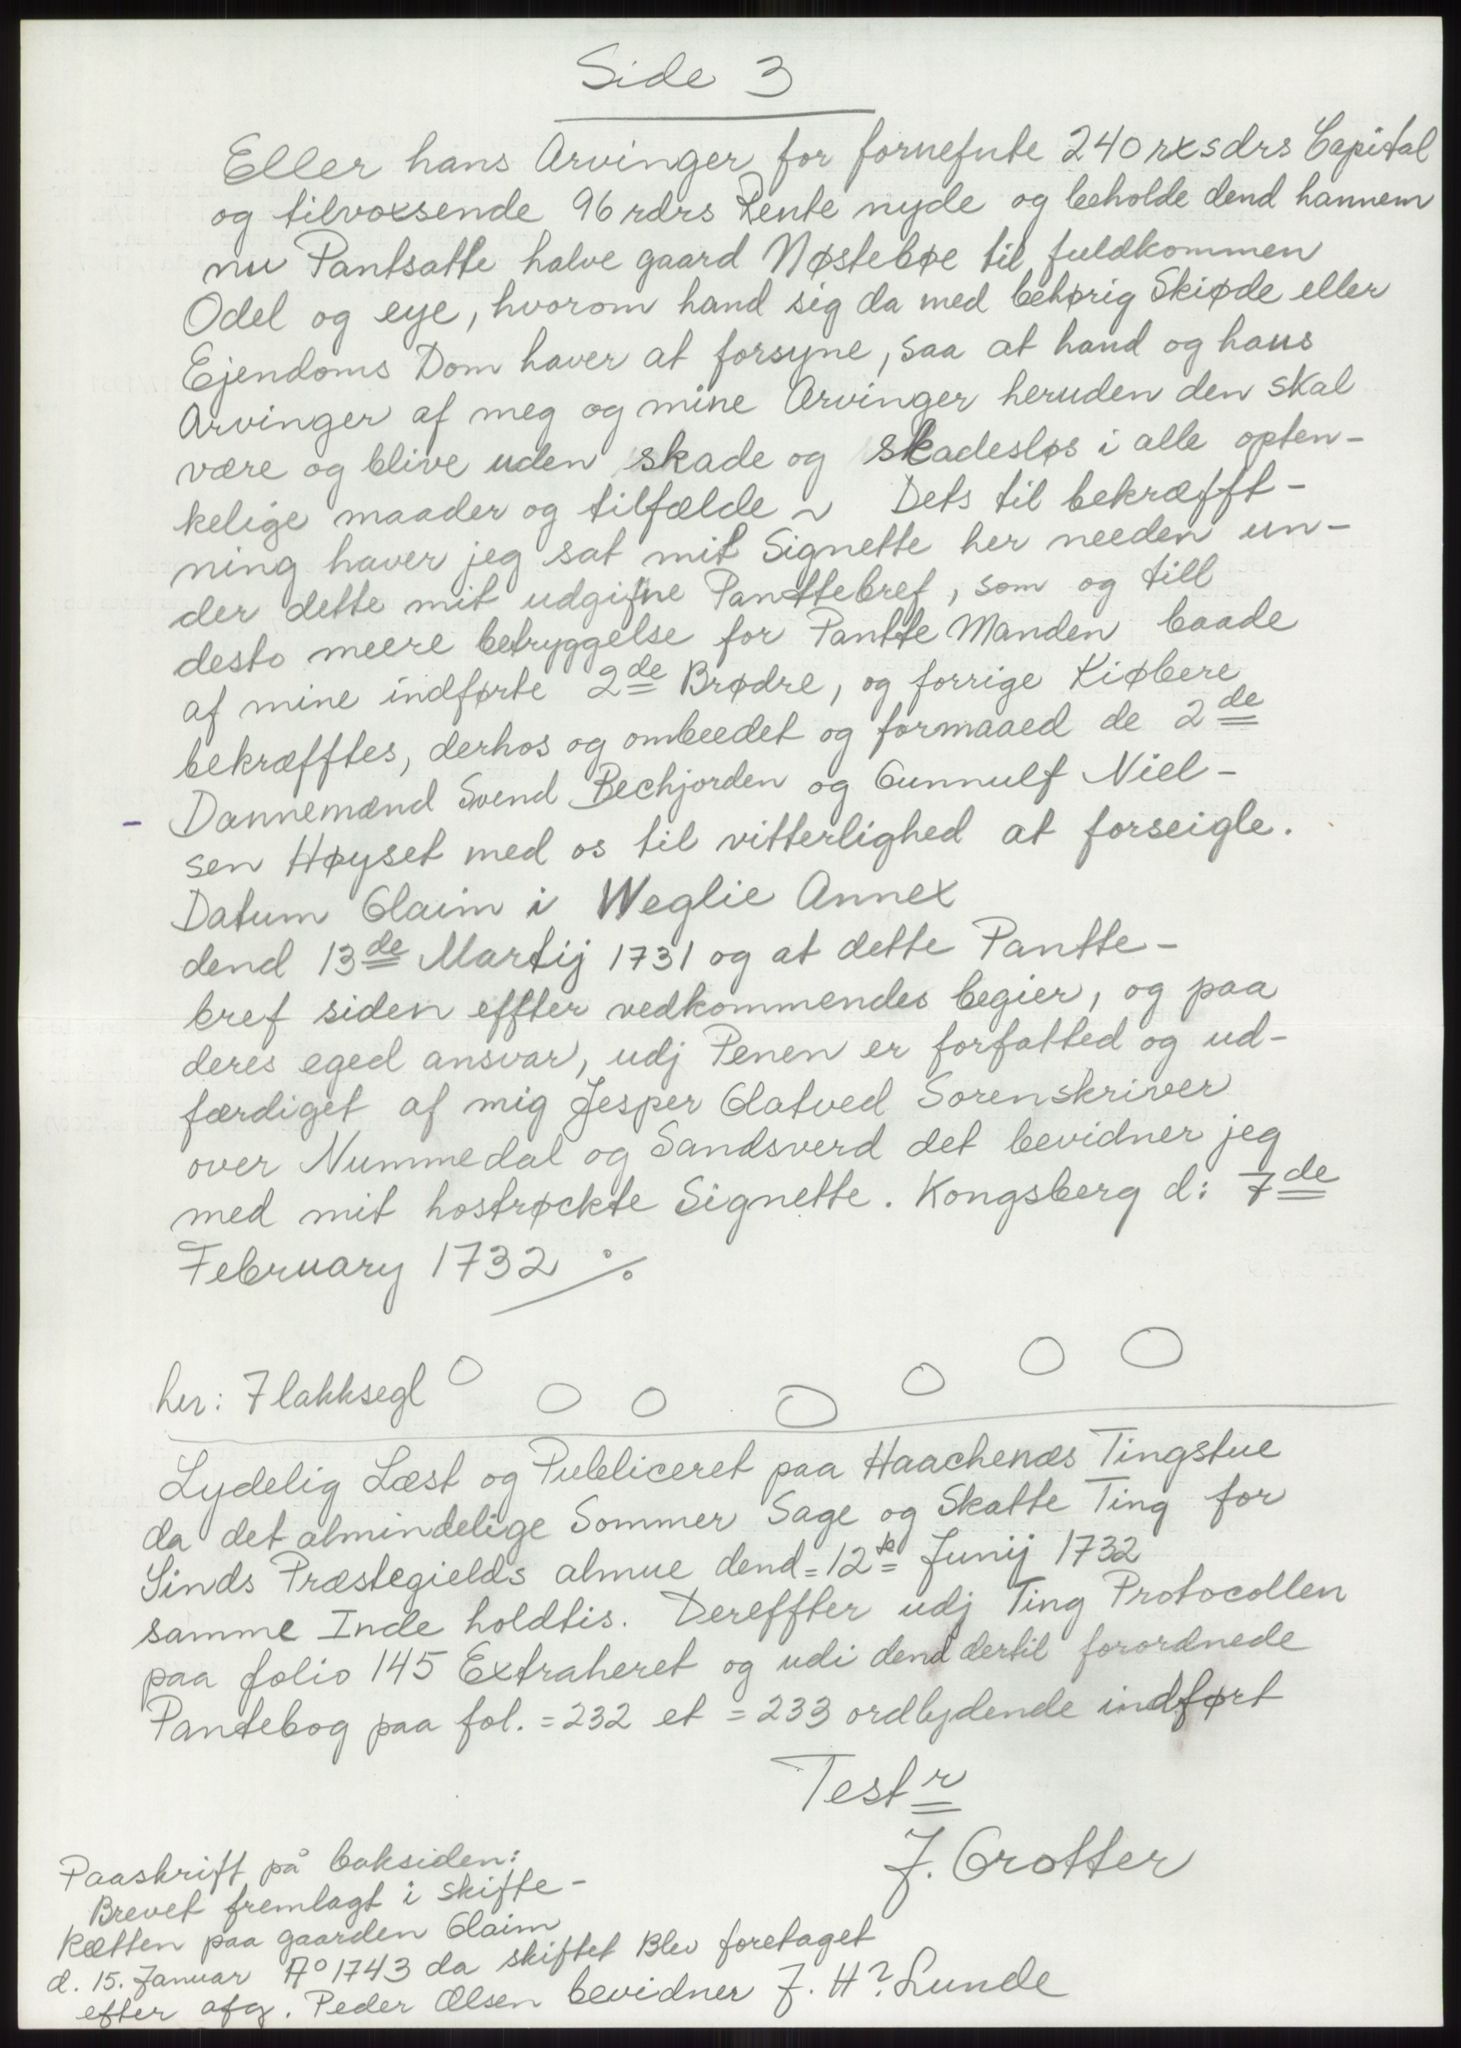 Side 3
Eller hans Arvinger for fornefnte 240 rxsdrs Capital
og tilvoxsende 96 rdrs Rente nyde og beholde dend hannem
nu Pantsatte halve gaard Nøstebøe til fuldkommen
Odel og eye, hvorom hand sig da med behørig Skiøde eller
Ejendoms Dom haver at forsyne, saa at hand og hans
Arvinger af meg og mine Arvinger heruden den skal
være og blive uden skade og skadesløs i alle opten-
kelige maader og tilfælde ~ Dets til bekræfft-
ning haver jeg sat mit Signette her neden un-
der dette mit udgifne Panttebref, som og till
desto meere betryggelse for Pantte Manden baade
af mine indførte 2de Brødre, og forrige Kiøbere
bekræfftes, derhos og ombeedet og formaaed de 2de
- Dannemænd Svend Bechjorden og Gunnulf Niel-
sen Høyset med os til vitterlighed at forseigle.
Datum Glaim i Weglie Annex
dend 13de Martij 1731 og at dette Pantte-
bref siden effter vedkommendes begier, og paa
deres eged ansvar, udj Penen er forfatted og ud-
færdiget af mig Jesper Glatved Sorenskriver
over Nummedal og Sandsverd det bevidner jeg
med mit hostrøckte Signette. Kongsberg d: 7de
February 1732 ./.
her: 7 lakksegl
Lydelig Læst og Publiceret paa Haachenæs Tingstue
da det almindelige Sommer Sage og Skatte Ting for
Sinds Præstegields almue dend = 12te = Junij 1732
samme Inde holdtis. Dereffter udj Ting Protocollen
paa folio 145 Extraheret og udi dend dertil forordnede
Pantebog paa fol. = 232 et = 233 ordlydende indført
Testr
J. Grotter
Paaskrift på baksiden:
Brevet fremlagt i skifte-
Rætten paa gaarden Glaim
d. 15. Januar Ao 1743 da skiftet Blev foretaget
efter afg. Peder Olsen bevidner J. H? Lunde